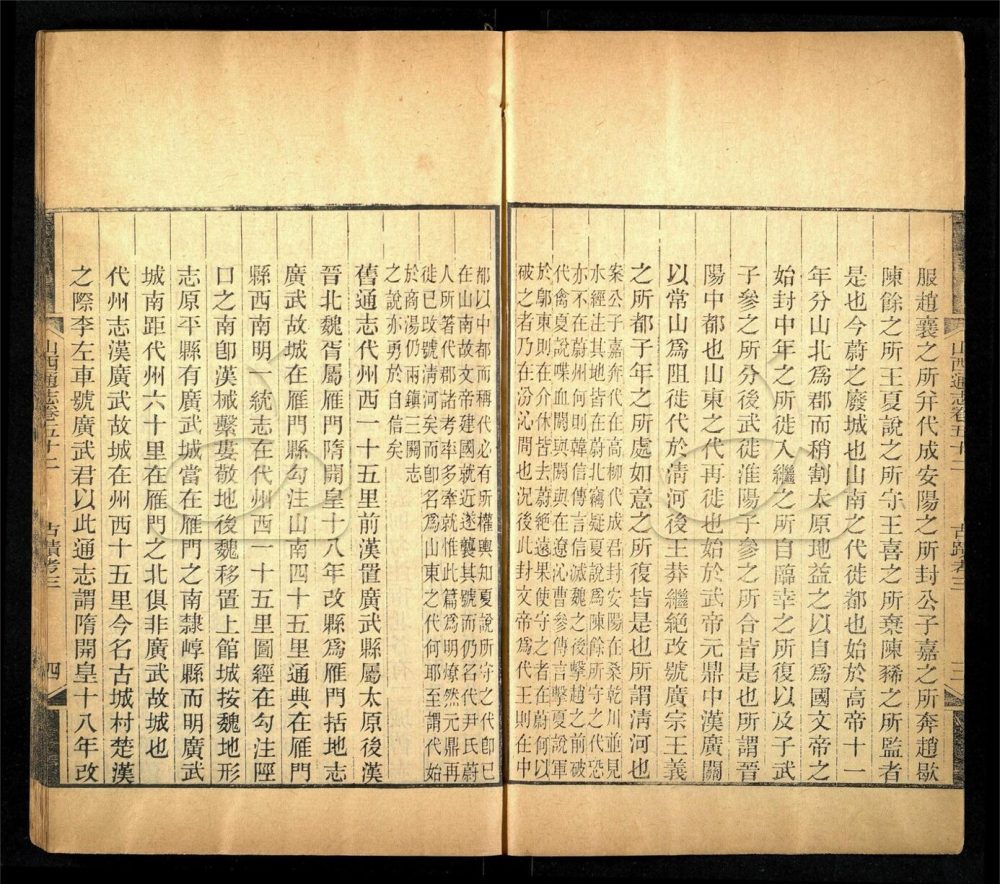 服趙襄之所幷代成安陽之所封公子嘉之所奔趙歇
陳餘之所王夏說之所守王喜之所棄陳豨之所監者
是也今蔚之廢城也山南之代徙都也始於高帝十一
年分山北爲郡而稍割太原地益之以自爲國文帝之
始封中年之所徙入繼之所自臨幸之所復以及子武
子參之所分後武徙淮陽子參之所合皆是也所謂晉
陽中都也山東之代再徙也始於武帝元鼎中漢廣關
以常山爲阻徙代於淸河後王莽繼絕改號廣宗王義
之所都子年之所處如意之所復皆是也所謂淸河也
案公子嘉奔代在高柳代成君封安陽在桑乾川並見
水經注其地皆在蔚北竊疑夏說爲陳餘所守之代恐
亦不在蔚州何則韓信傳言信滅魏之後擊趙之前破
代禽夏說喋血閼與閼與在遼沁曹參傳言擊夏說軍
於鄔東則在介休皆去蔚絕遠果使守之者在蔚何以
破之者乃在汾沁間也況後此封文帝爲代王則在中
山西通志卷五十二
古蹟考三
三
都以中都而稱代必有所權輿知夏說所守之代卽已
在山南故文帝建國就近遂襲其號而仍名代尹氏蔚
人所著代郡諸考率多牽就惟此篇爲明燎然元鼎再
徙已改號淸河矣而卽名爲山東之代何耶至謂代始
於商湯仍兩鎭三關志
之說亦勇於自信矣
舊通志代州西一十五里前漢置廣武縣屬太原後漢
晉北魏胥屬雁門隋開皇十八年改縣爲雁門括地志
廣武故城在雁門縣勾注山南四十五里通典在雁門
縣西南明一統志在代州西一十五里圖經在勾注陘
口之南卽漢械繫婁敬地後魏移置上館城按魏地形
志原平縣有廣武城當在雁門之南隸崞縣而明廣武
城南距代州六十里在雁門之北俱非廣武故城也
代州志漢廣武故城在州西十五里今名古城村楚漢
之際李左車號廣武君以此通志謂隋開皇十八年改
山西通志卷五十二
古蹟考三
四